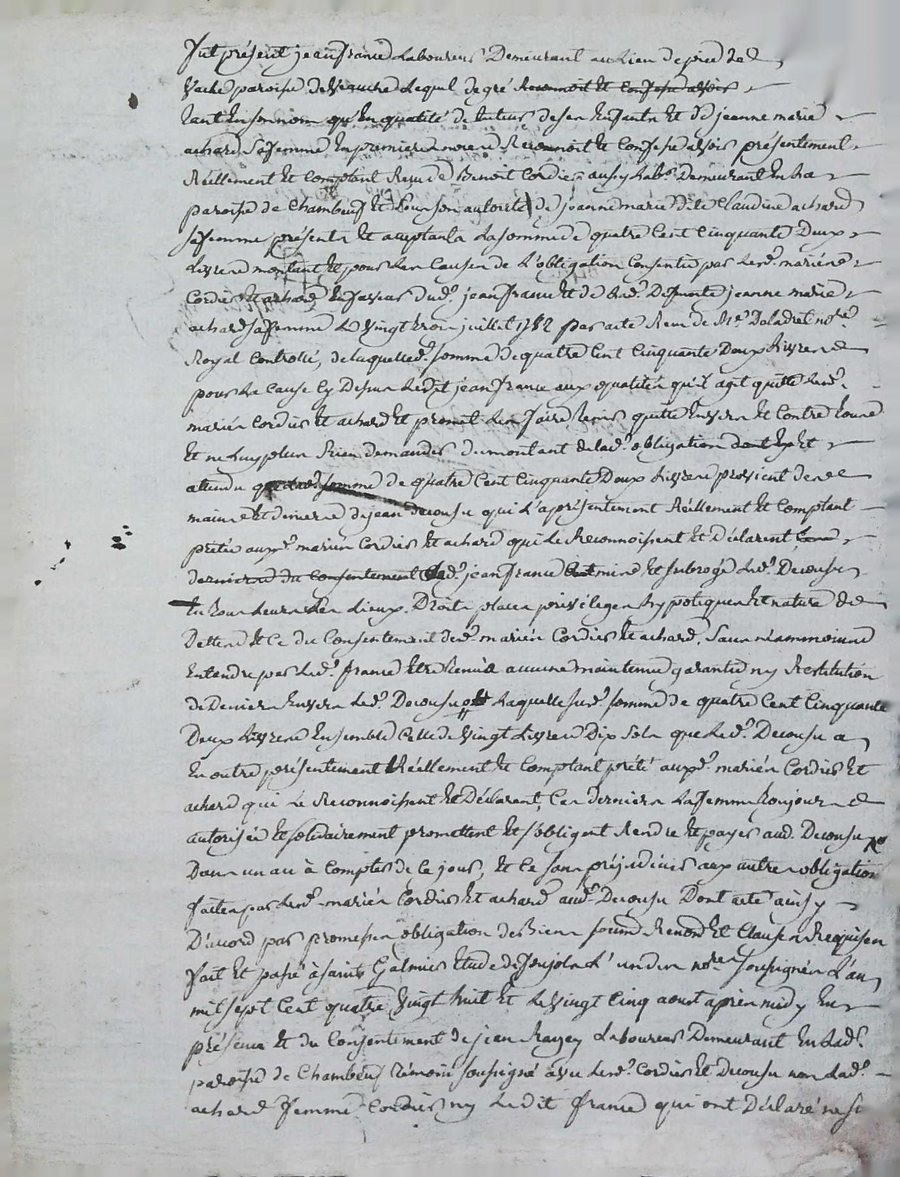 fut présent jean france Laboureur Demeurant au Lieu de pied de
vache paroisse de Lequel de gré Reconnoit et Confesse avoir
tant en son nom qu'en qualité de tuteur de ses Enfants et de jeanne marie
achard sa femme En premiere noces Reconnoit et Confesse avoir présentement
Réellement et Comptant Reçu de Benoit Cordier aussy Labr Demeurant En La
paroisse de Chambeuf et sous son autorité de jeanne marie dite Claudine achard
sa femme présents et acceptants La somme de quatre Cent Cinquante Deux
Livres montant et pour Les Causes de L'obligation Consentie par Lesd. mariés
Cordier et achard En faveur dud. jean france et de lad. Defunte jeanne marie
achard sa femme Le vingt trois juillet 1782 par acte Reçu de Me Daladret nore
Royal Controllé, de laquelle d. somme de quatre Cent Cinquante Deux Livres
pour La Cause Cy Dessus Ledit jean france aux qualités qu'il agit quitte Lesd.
mariés Cordier et achard et promet Les faire tenir quitte Envers et Contre tous
et ne Luy plus Rien demander du montant de lad. obligation dont
attendu que lad. somme de quatre Cent Cinquante Deux Livres provient des
mains et deniers de jean Decousu qui L'a présentement Réellement et Comptant
prétée auxd. mariés Cordier et achard qui Le Reconnoissent et Déclarent
derniers du Consentement dud. jean france mis et subrogé Led. Decousu
En tous Leurs Lieux, Droits, places privileges hypotiques et nature de
Dettes et Ce du Consentement desd. mariés Cordier et achard, Sans néammoins
Entendre par Led. france Etre tenu à aucune maintenue garantie ny Restitution
de Deniers Envers Led. Decousu Laquelle susd. somme de quatre Cent Cinquante
Deux Livres Ensemble Celle de vingt Livres Dix Sols que Led. Decousu a
En outre présentement Réellement et Comptant prété auxd. mariés Cordier et
achard qui Le Reconnoissent et Déclarent, Ces derniers La femme toujours
autorisée et solidairement promettent et s'obligent Rendre et payer aud. Decousu
Dans un an à Compter de Ce jour, et Ce sans préjudicier aux autres obligation
faites par Lesd. mariés Cordier et achard aud. Decousu Dont acte ainsy
D'acord par promesses obligation de Biens soumis Renond et Clauses Requises
fait et passé à saint Galmier Etude de L'un des nores soussignés L'an
mil sept Cent quatre vingt huit et Le vingt Cinq aoust après midy En
présence et du Consentement de jean Laboureur Demeurant En Lad.
paroisse de Chambeuf témoin soussigné avec Lesd. Cordier et Decousu non Lad.
achard femme Cordier ny Ledit france qui ont Déclaré ne si